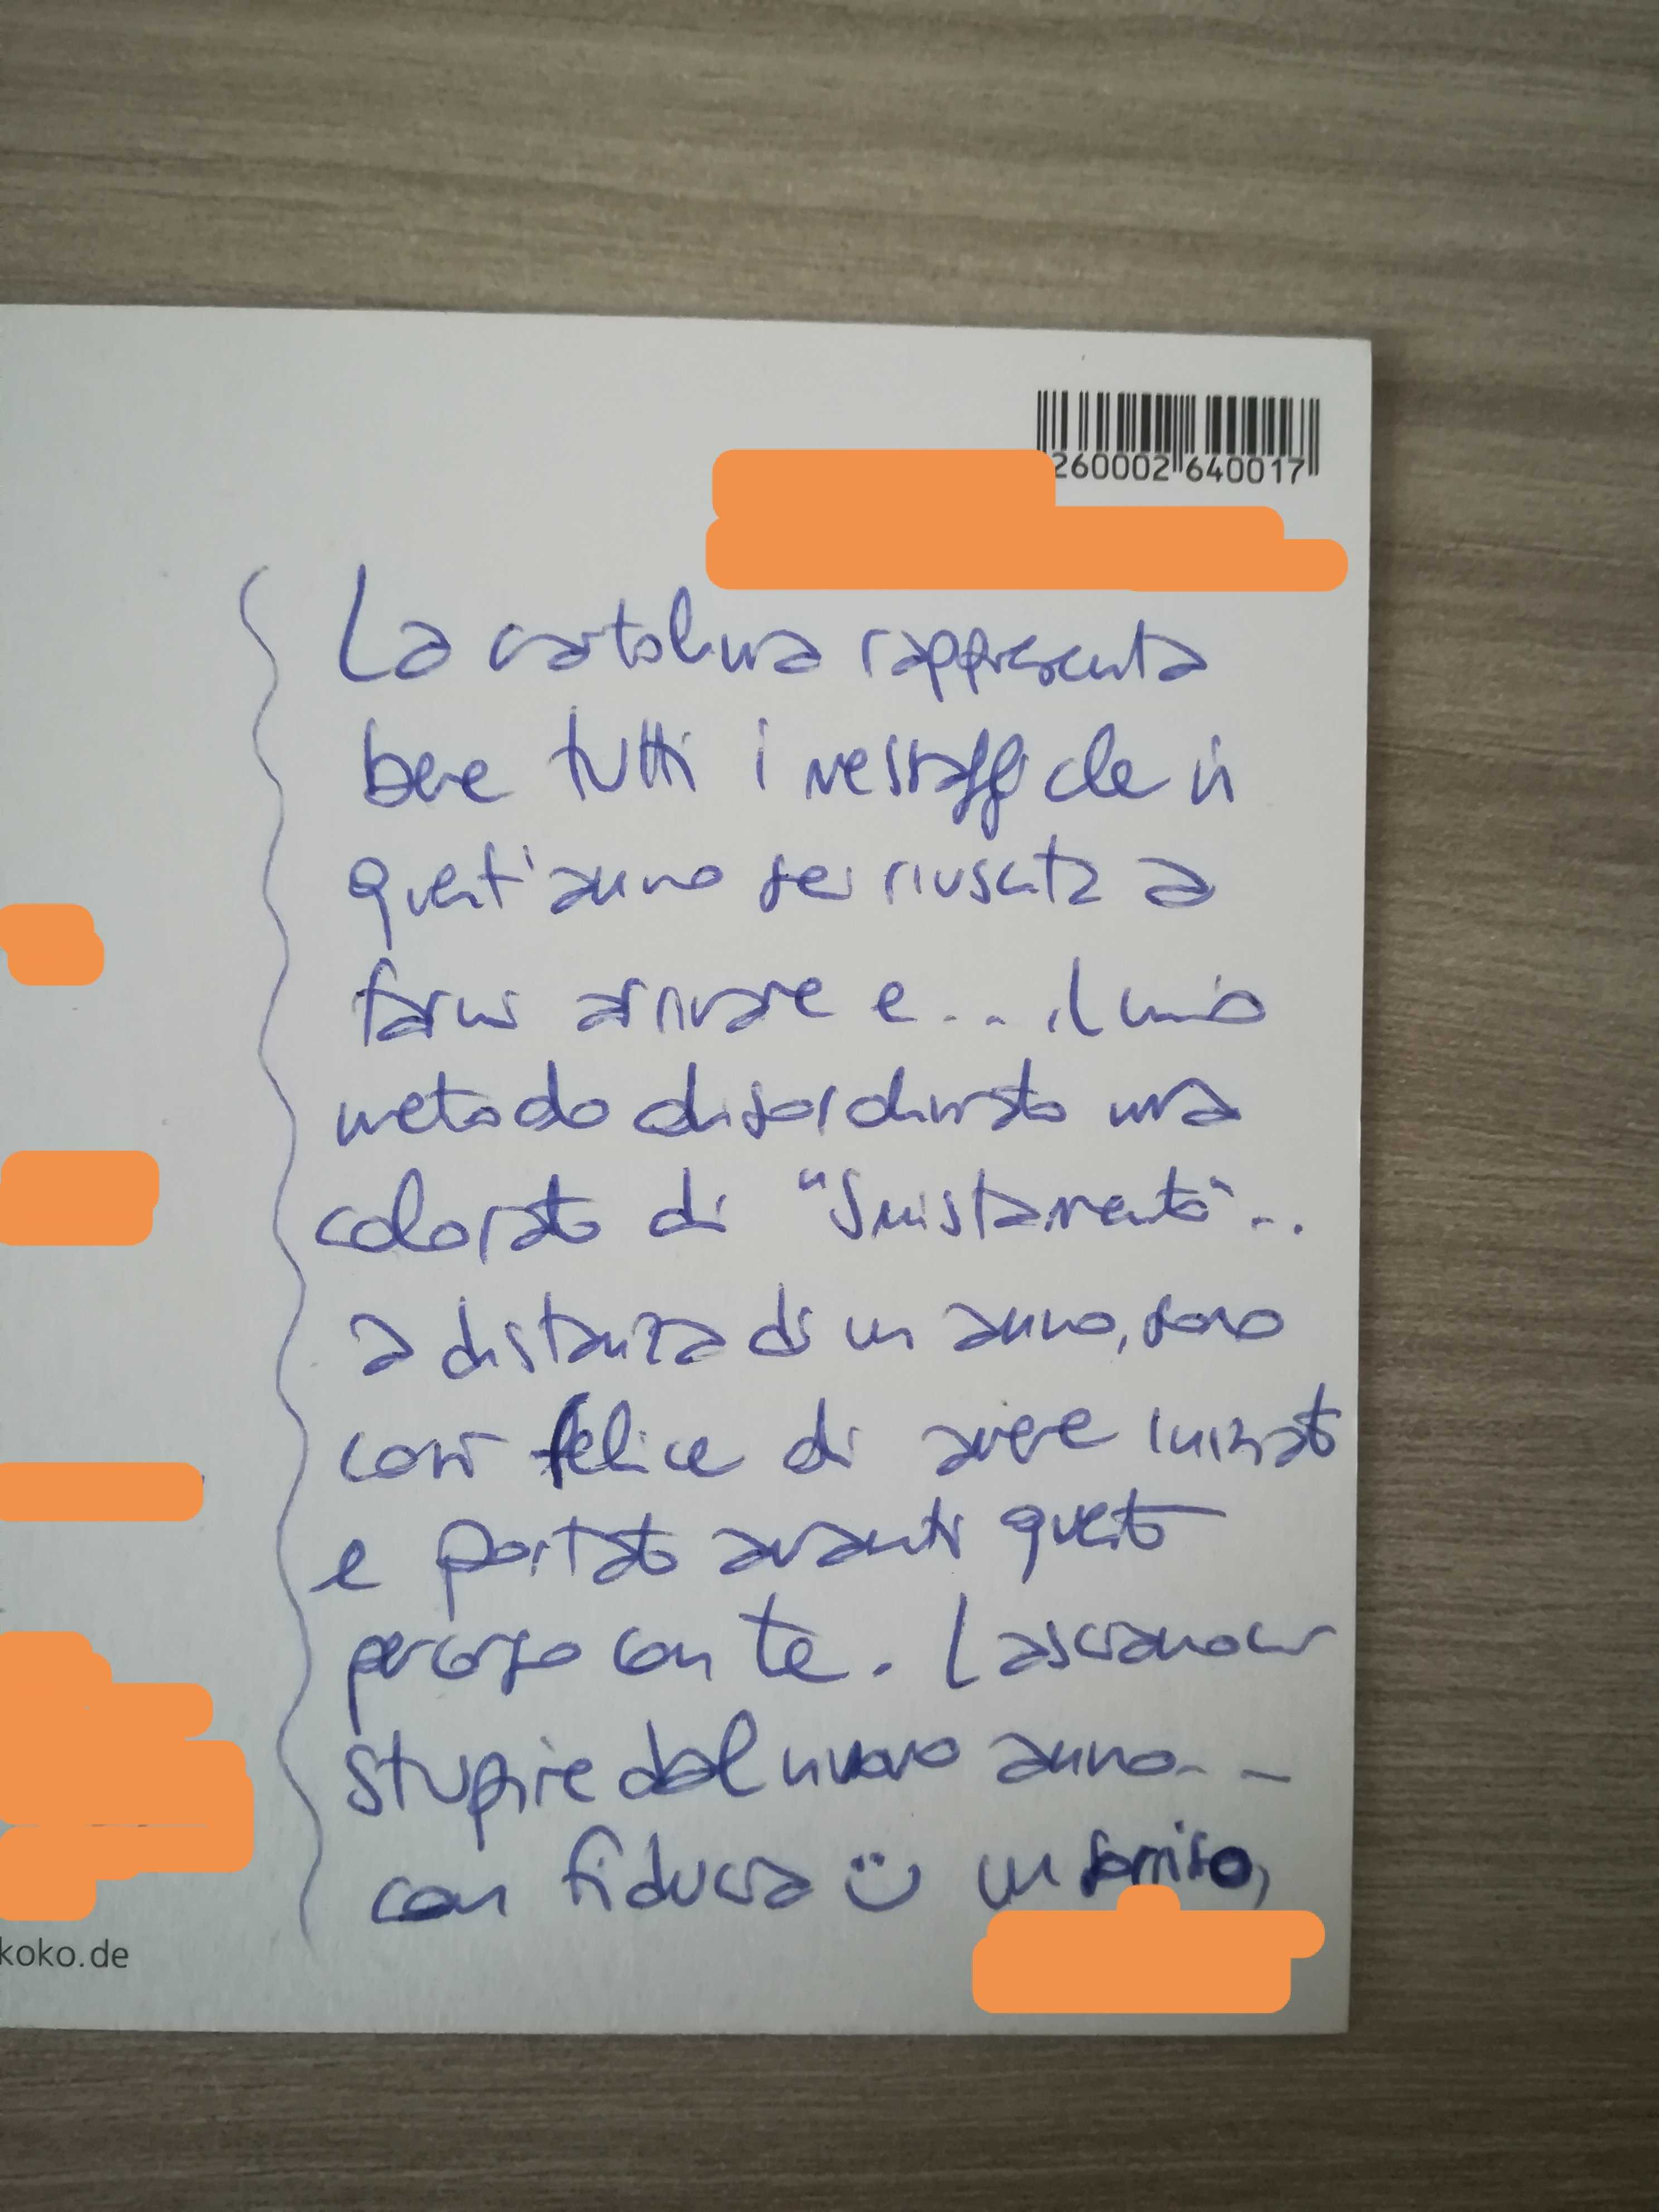 260002 640017
La cartolina rappresenta
bene tutti i messaggi che in
quest'anno sei riuscita a
farmi arrivare e... il mio
metodo disordinato ma
colorato di "smistamento"...
a distanza di un anno, sono
così felice di avere iniziato
e portato avanti questo
percorso con te. Lasciamoci
stupire dal nuovo anno...
con fiducia un sorriso,
koko.de